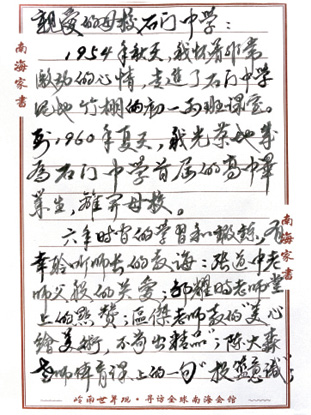 親愛的母校石门中学:
1954年秋天,我怀着非常
激动的心情,走進了石门中学
泥地竹棚的初一丙班課室。
到1960年夏天,我光荣地成
为石门中学首届的高中畢
業生,離开母校。
六年时間的学習和鍛鍊,有
幸聆听师长的教诲:張道中老
师父般的关爱;邹耀时老师堂
上的點赞;温傑老师教的"美心
繪美術,不苟出精品";陈大森
老师体育课上的一句"投篮意識";
南海家書
南海家書
岭南世界观·寻访全球南海会馆